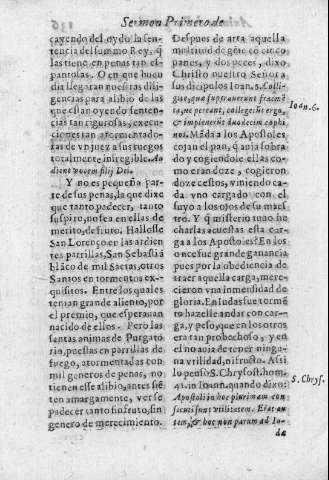 Sermon Primero de
cayendo del oydo la sen-
tencia del summo Rey, q̃
las tiene en penas tan es-
pantolas. O en que buẽ
dia llegaran nuestras dili-
gencias para alibio de las
que estan oyendo senten-
cias tan rigurosas, execu-
ciones tan atormentado-
ras de vn juez a sus ruegos
totalmente inflexible. Au
dient vocem filij Dei.
Y no es pequeña par-
te de sus penas, la que dize
que tanto padecer, tanto
suspiro, no sea en ellas de
merito, de fruto. Hallosse
San Lorenço en las ardien
tes parrillas, San Sebastiã
blãco de mil saetas, otros
Santos en tormentos ex-
quisitos. Entre los quales
tenian grande aliento, por
el premio, que esperauan
nacido de ellos. Pero las
santas animas de Purgato
rio, puestas en parrillas de
fuego, atormentadas con
mil generos de penas, no
tienen esse alibio, antes siẽ
ten amargamente, verse
padecer tanto sin fruto, sin
genero de merecimiento.
Despues de arta aquella
multitud de gẽte cõ cinco
panes, y dos peces, dixo
Christo nuestro Señor a
sus dicipulos Ioan. 6. Colli-
gite, quæ superauerunt fragmẽ
ta, ne pereant, collegerũt ergo,
& impleuerũt duodecim cophi
nos. Mãda a los Apostoles
cojan el pan, q̃ auia sobra
do y cogiendole ellas co-
mo eran doze, cogieron
doze cestos, viniendo ca-
da vno cargado con el
suyo a los ojos de su maes
tro. Y q̃ misterio tuuo he
charlas acuestas esta car-
ga a los Apostoles? En los
once fue grande ganancia
pues por la obediencia de
traer aquella carga, mere-
cieron vna inmensidad de
gloria. En Iudas fue tormẽ
to hazelle andar con car-
ga, y peso, que en los otros
era tan probechoso, y en
el no auia de tener ningu-
na vtilidad, ni fruto. Assi
lo pensò S. Chrysost. hom.
41. in Ioan. quando dixo:
Apostoli in hoc plurimam con
secuti sunt vtilitatem. Erat au
tem, & hoc non parum ad Iu-
da
Ioan. 6.
S. Chrys.